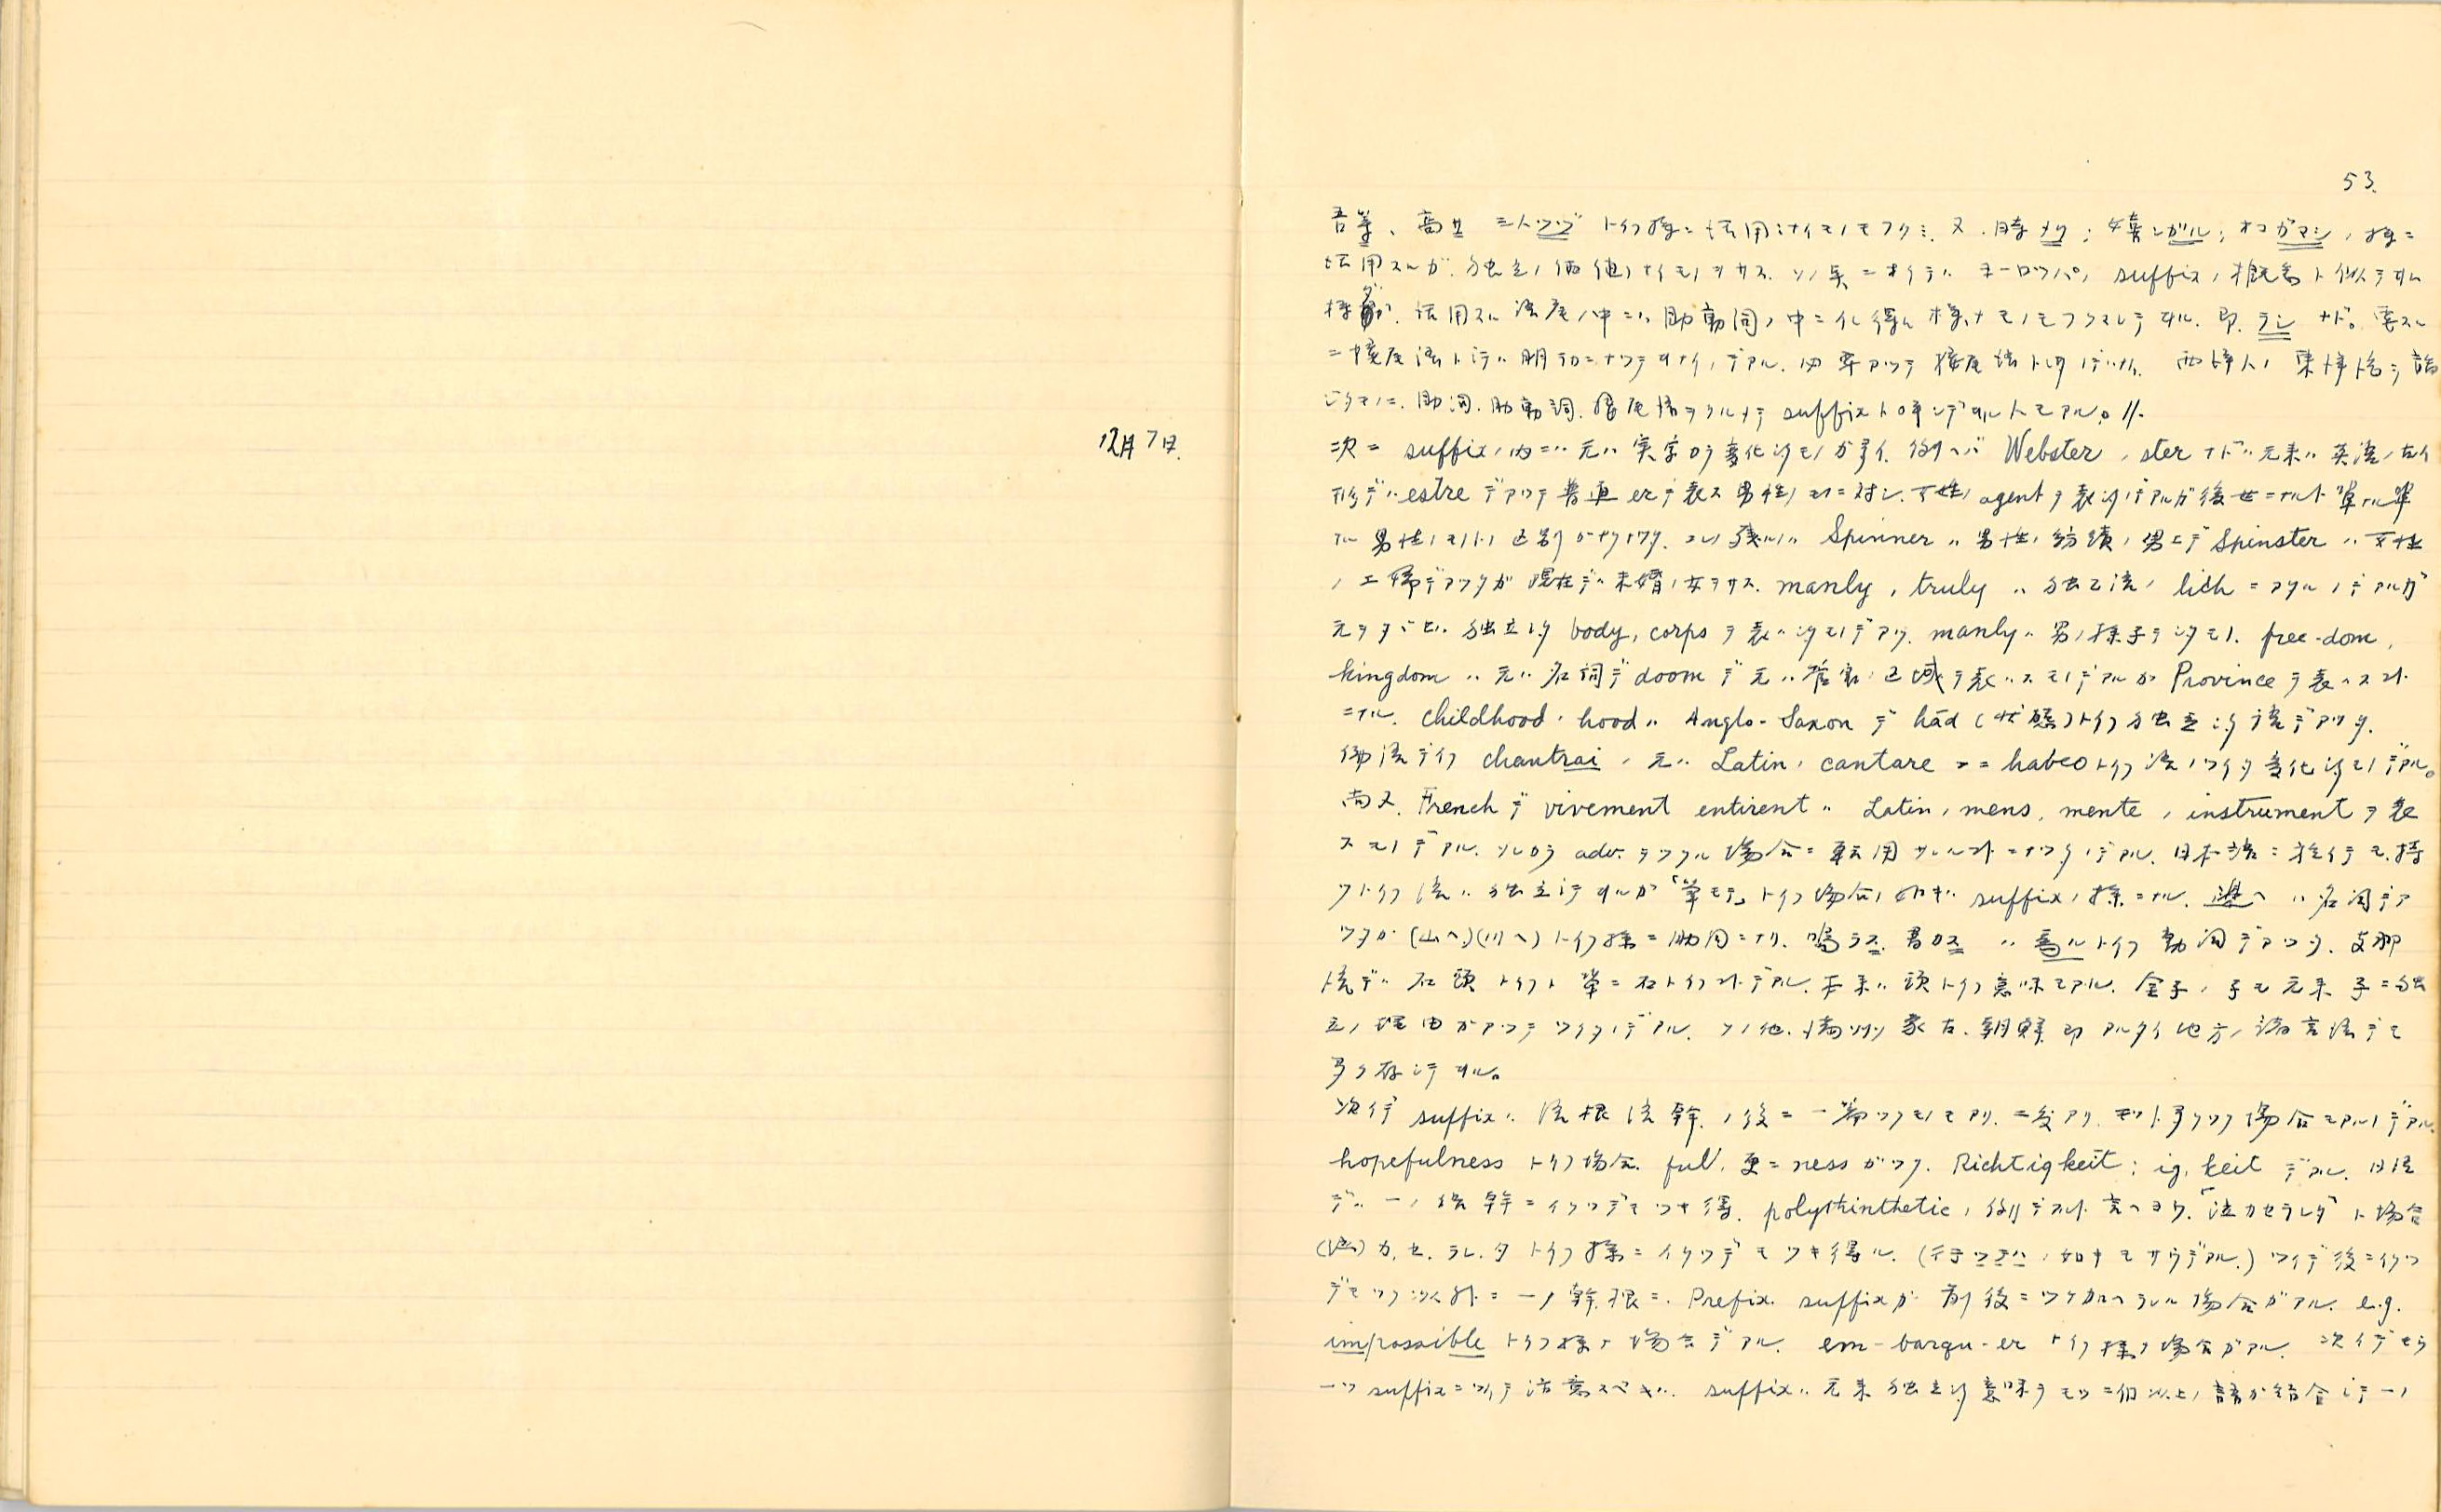 53.
吾等、高サ ミトツヅ トイフ様ニ活用シナイモノモフクミ、又、時メク; 嬉シガル; オコガマシ、様ニ
活用スルガ、独立ノ価値ノナイモノヲサス。ソノ点ニオイテハ ヨーロッパノ suffixノ概念ト似テヰル
様ダガ、活用スル語尾ノ中ニハ助動詞ノ中ニイレ得ル様ナモノモフクマレテヰル。即、ラシ ナド。要スル
ニ接尾語トシテハ明ラカニナッテヰナイノデアル。必要アッテ接尾語トシタノデハナイ。西洋人ノ東洋語ヲ論
ジタモノニ、助詞、助動詞、接尾語ヲクルメテ suffixト呼ンデヰルトモアル。//.
12月7日.
次ニ suffixノ内ニハ元ハ実字カラ変化シタモノガ多イ。例ヘバ Webster ノ ster ナドハ元来ハ英語ノ古イ
形デハ estre デアッテ普通 erデ表ス男性ノモノニ対シ、女性ノ agentヲ表シタノデアルガ後世ニナルト単ナル
ル男性ノモノトノ区別ガナクナッタ。コレノ残リハ Spinner ハ男性ノ紡績ノ男工デ Spinster ハ女性
ノ工婦デアッタガ現在デハ未婚ノ女ヲサス。manly, truly ハ独乙語ノ lich ニアタルノデアルガ
元ヲタドレバ独立シタ body, corps ヲ表ハシタモノデアッタ。manlyハ男ノ様子ヲシタモノ。free-dom,
kingdom ハ元ハ名詞デ doom デ元ハ管轄ノ区域ヲ表ハスモノデアルガ Province ヲ表ハスコト
ニナル。childhoodノ hoodハ Anglo-Saxon デ hād (状態)トイフ独立シタ語デアッタ。
佛語デイフ chantrai ハ元ハ Latinノ cantare ニ habeoトイフ語ノツイタ変化シタモノデアル。
尚又、Frenchデ vivement entirent ハ Latinノ mens, mente ノ instrument ヲ表
スモノデアル。ソレカラ adv. ヲツクル場合ニ転用サレルコトニナッタノデアル。日本語ニ於イテモ、持
ツトイフ語ハ独立シテヰルガ「筆モテ」トイフ場合ノ如キハ suffixノ様ニナル。邊ヘ ハ名詞デア
ッタガ (山ヘ)(川ヘ) トイフ様ニ助詞ニナリ、鳴ラス、君カス ハ 為ルトイフ動詞デアッタ。支那
語デハ石頭トイフト単ニ石トイフコトデアル。本来ハ頭トイフ意味モアル。金子ノ子モ元来子ニ独
立ノ理由ガアッテツイタノデアル。ソノ他、満州、蒙古、朝鮮、即アルタイ地方ノ諸言語デモ
多ク存シテヰル。
次イデ suffixハ語根語幹ノ後ニ一ツ附ツクモノモアリ、二ツアリ、モット多クツク場合モアルノデアル。
hopefulness トイフ場合、ful, 更ニ ness ガツク。Richtigkeit; ig, keit デアル。日語
デハ一ノ語幹ニイクツデモツキ得。polysthinthetic ノ例デコト言ヘヨウ。「泣カセラレタ」ト場合
(泣)カ、セ、ラレ、タ トイフ様ニイクツデモツキ得ル。 ツイデ後ニイクツ
デモツク以外ニ一ノ幹、根ニ、Prefix, suffixガ前後ニツケ加ヘラレル場合ガアル。e.g.
impossible トイフ様ナ場合デアル。em-barqu-er トイフ様ナ場合ガアル。次イデモウ
一ツ suffixニツイテ注意スベキハ、suffixハ元来独立シタ意味ヲモツ二個以上ノ語ガ結合シテ一ノ